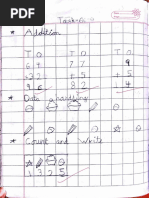 Task-
* Addition
T O T O T O
6 4 7 7 9
+ 3 2 + 5 + 5
9 6 8 2 1 4
* Data handling
* Count and Write
1 3 2 5